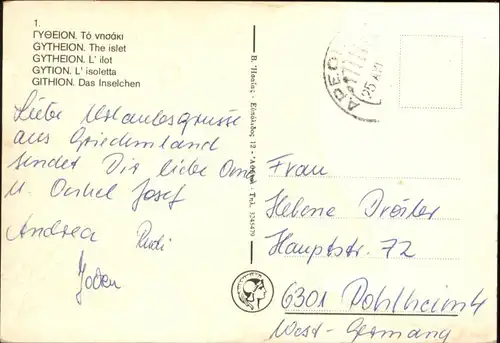 1.
ΓΥΘΕΙΟΝ. Τό νησάκι
GYTHEION. The islet
GYTHEION. L' ilot
GYTION. L' isoletta
GITHION. Das Inselchen
Liebe Urlaubsgrüsse
aus Griechenland
sendet Dir liebe Oma
u. Onkel Josef
Andrea Rudi
Β. 12 - Τηλ. 3245479
ΑΡΕΟΠ
25
Frau
Helene
Hauptstr. 72
6301 Pohlheim 4
West-Germany